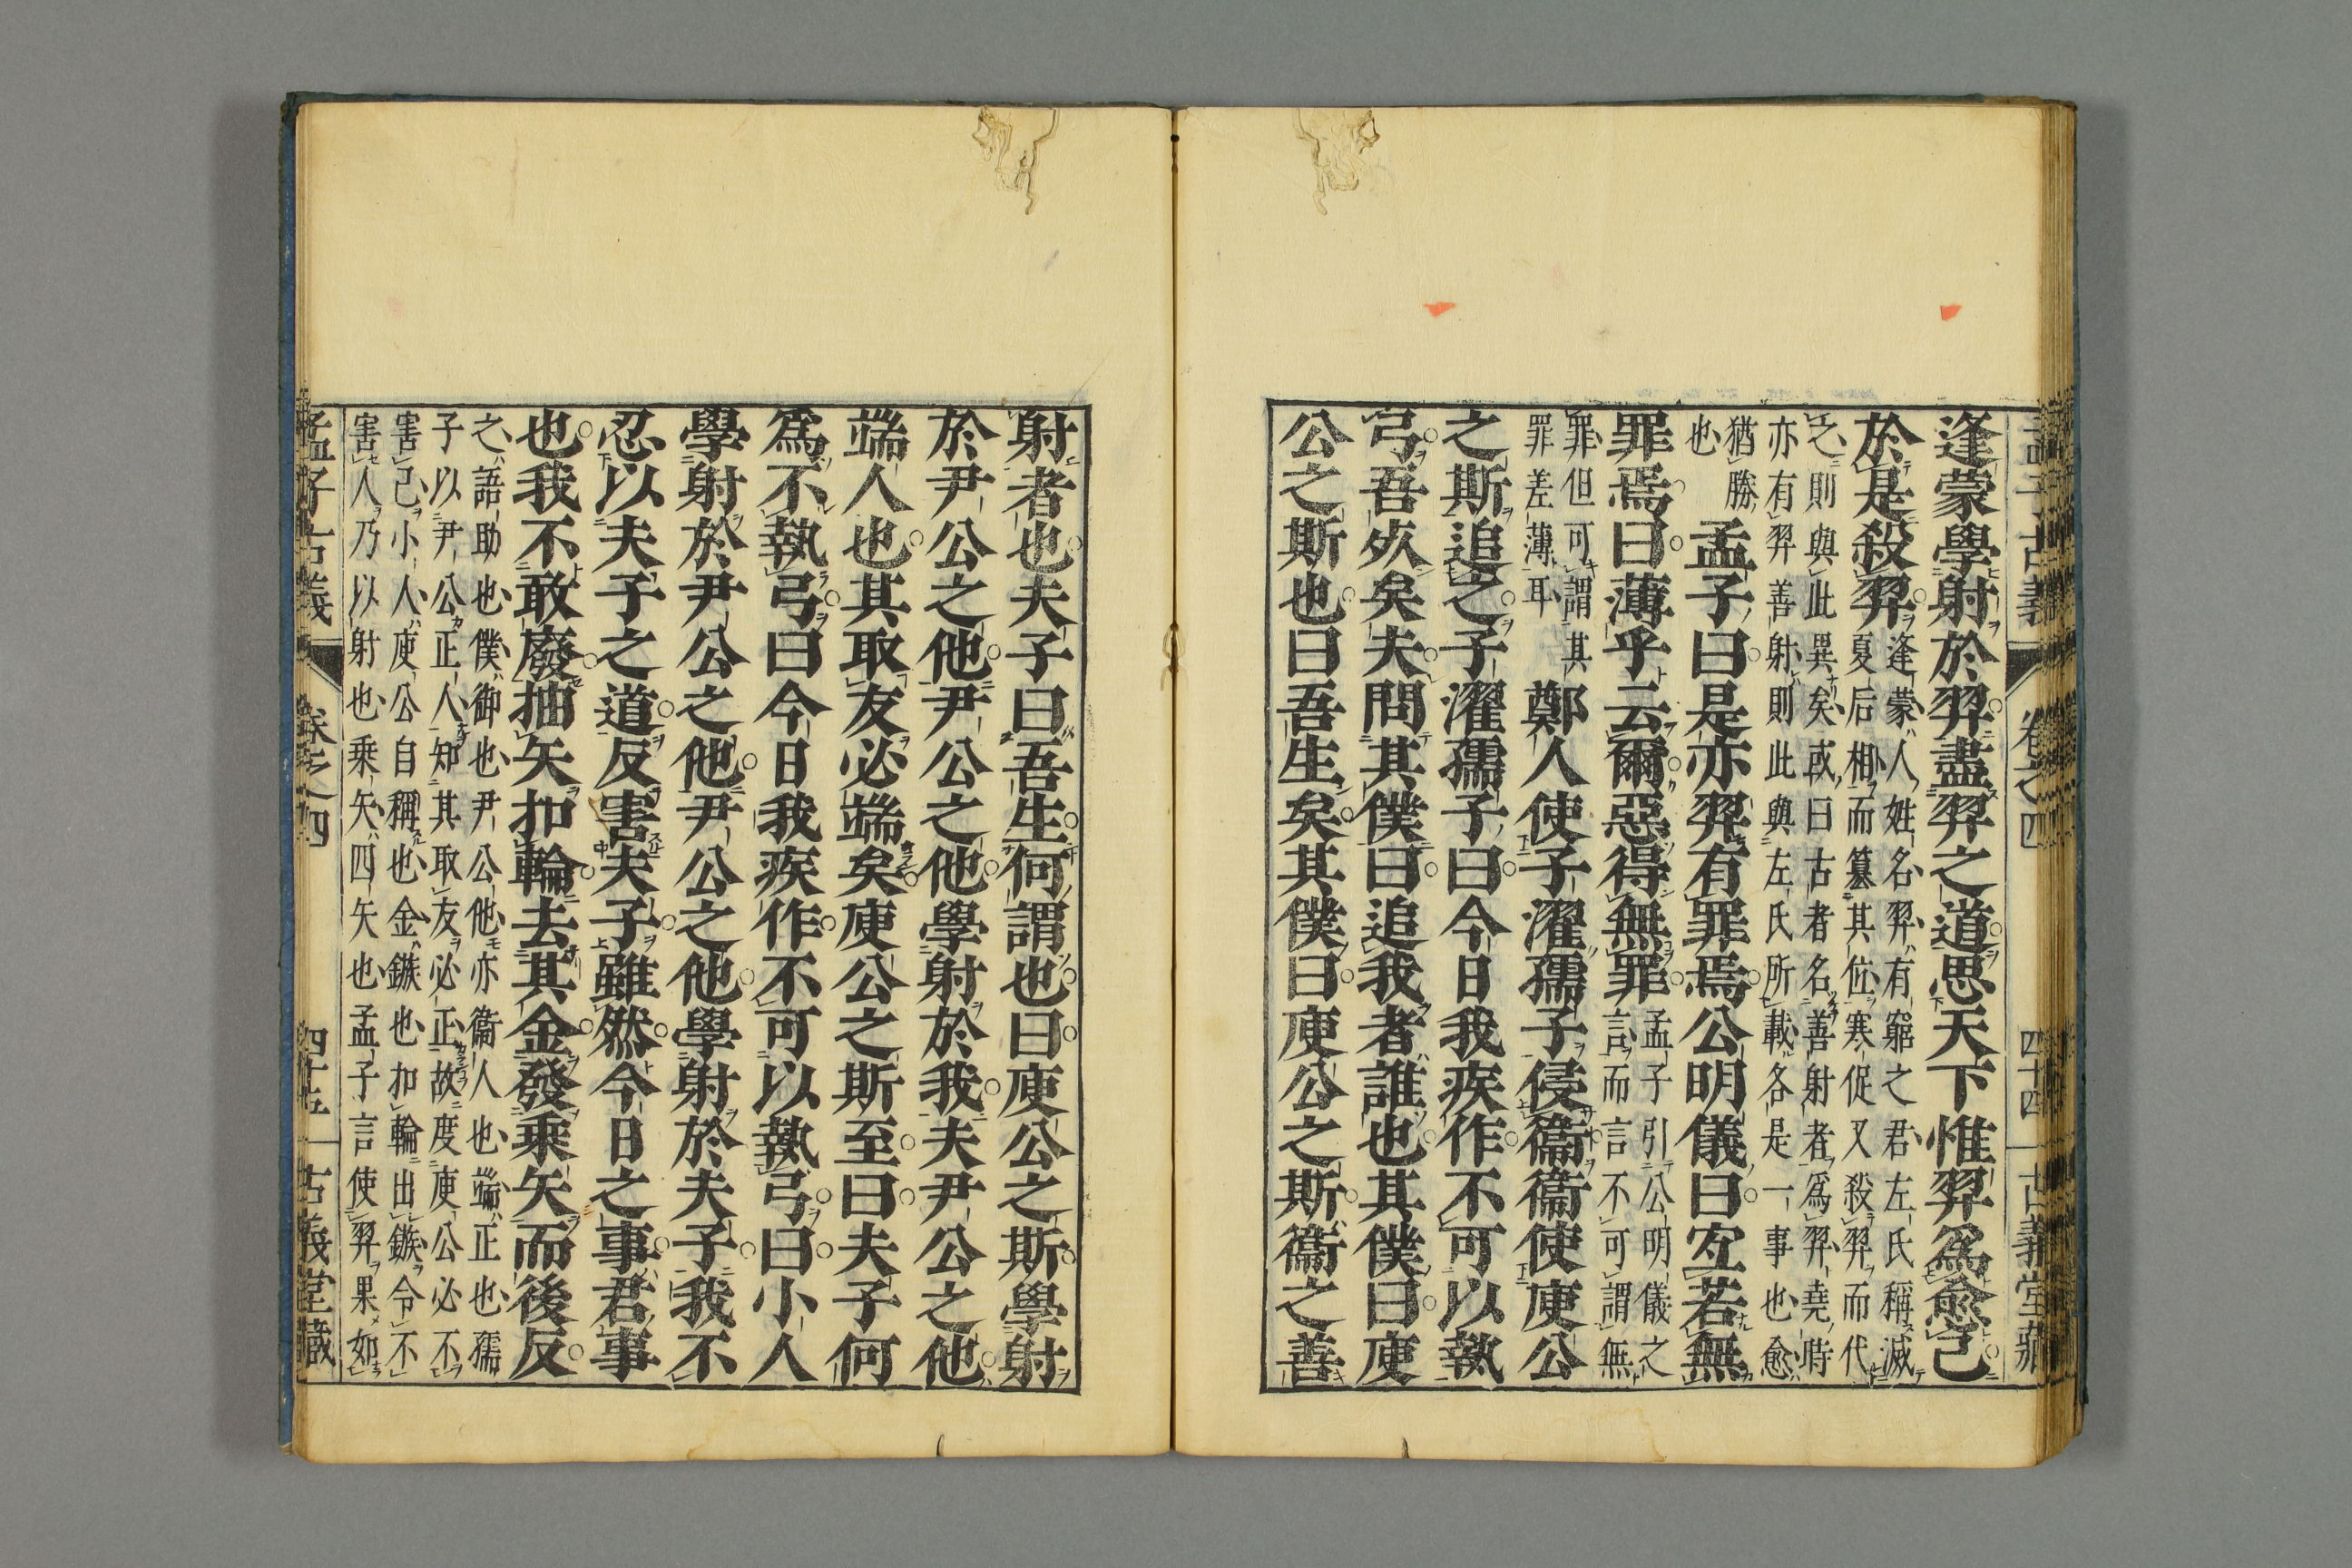 孟子古義 卷之四 四十四 古義堂藏
逢蒙學射於羿盡羿之道思天下惟羿爲愈己
於是殺羿
逢蒙人姓名羿有窮之君左氏稱滅
夏后相而篡其位寒促又殺羿而代
之則與此異矣或曰古者名善射者爲羿堯時
亦有羿善射則此與左氏所載各是一事也愈
猶勝
也
孟子曰是亦羿有罪焉公明儀曰宐若無
罪焉曰薄乎云爾惡得無罪
孟子引公明儀之
言而言不可謂無
罪但可謂其
罪差薄耳
鄭人使子濯孺子侵衞衞使庾公
之斯追之子濯孺子曰今日我疾作不可以執
弓吾死矣夫問其僕曰追我者誰也其僕曰庾
公之斯也曰吾生矣其僕曰庾公之斯衞之善
射者也夫子曰吾生何謂也曰庾公之斯學射
於尹公之他尹公之他學射於我夫尹公之他
端人也其取友必端矣庾公之斯至曰夫子何
爲不執弓曰今日我疾作不可以執弓曰小人
學射於尹公之他尹公之他學射於夫子我不
忍以夫子之道反害夫子雖然今日之事君事
也我不敢廢抽矢扣輪去其金發乘矢而後反
之語助也僕御也尹公他亦衞人也端正也孺
子以尹公正人知其取友必正故度庾公必不
害己小人庾公自稱也金鏃也扣輪出鏃令不
害人乃以射也乘矢四矢也孟子言使羿果如
孟子古義 卷之四 四十五 古義堂藏